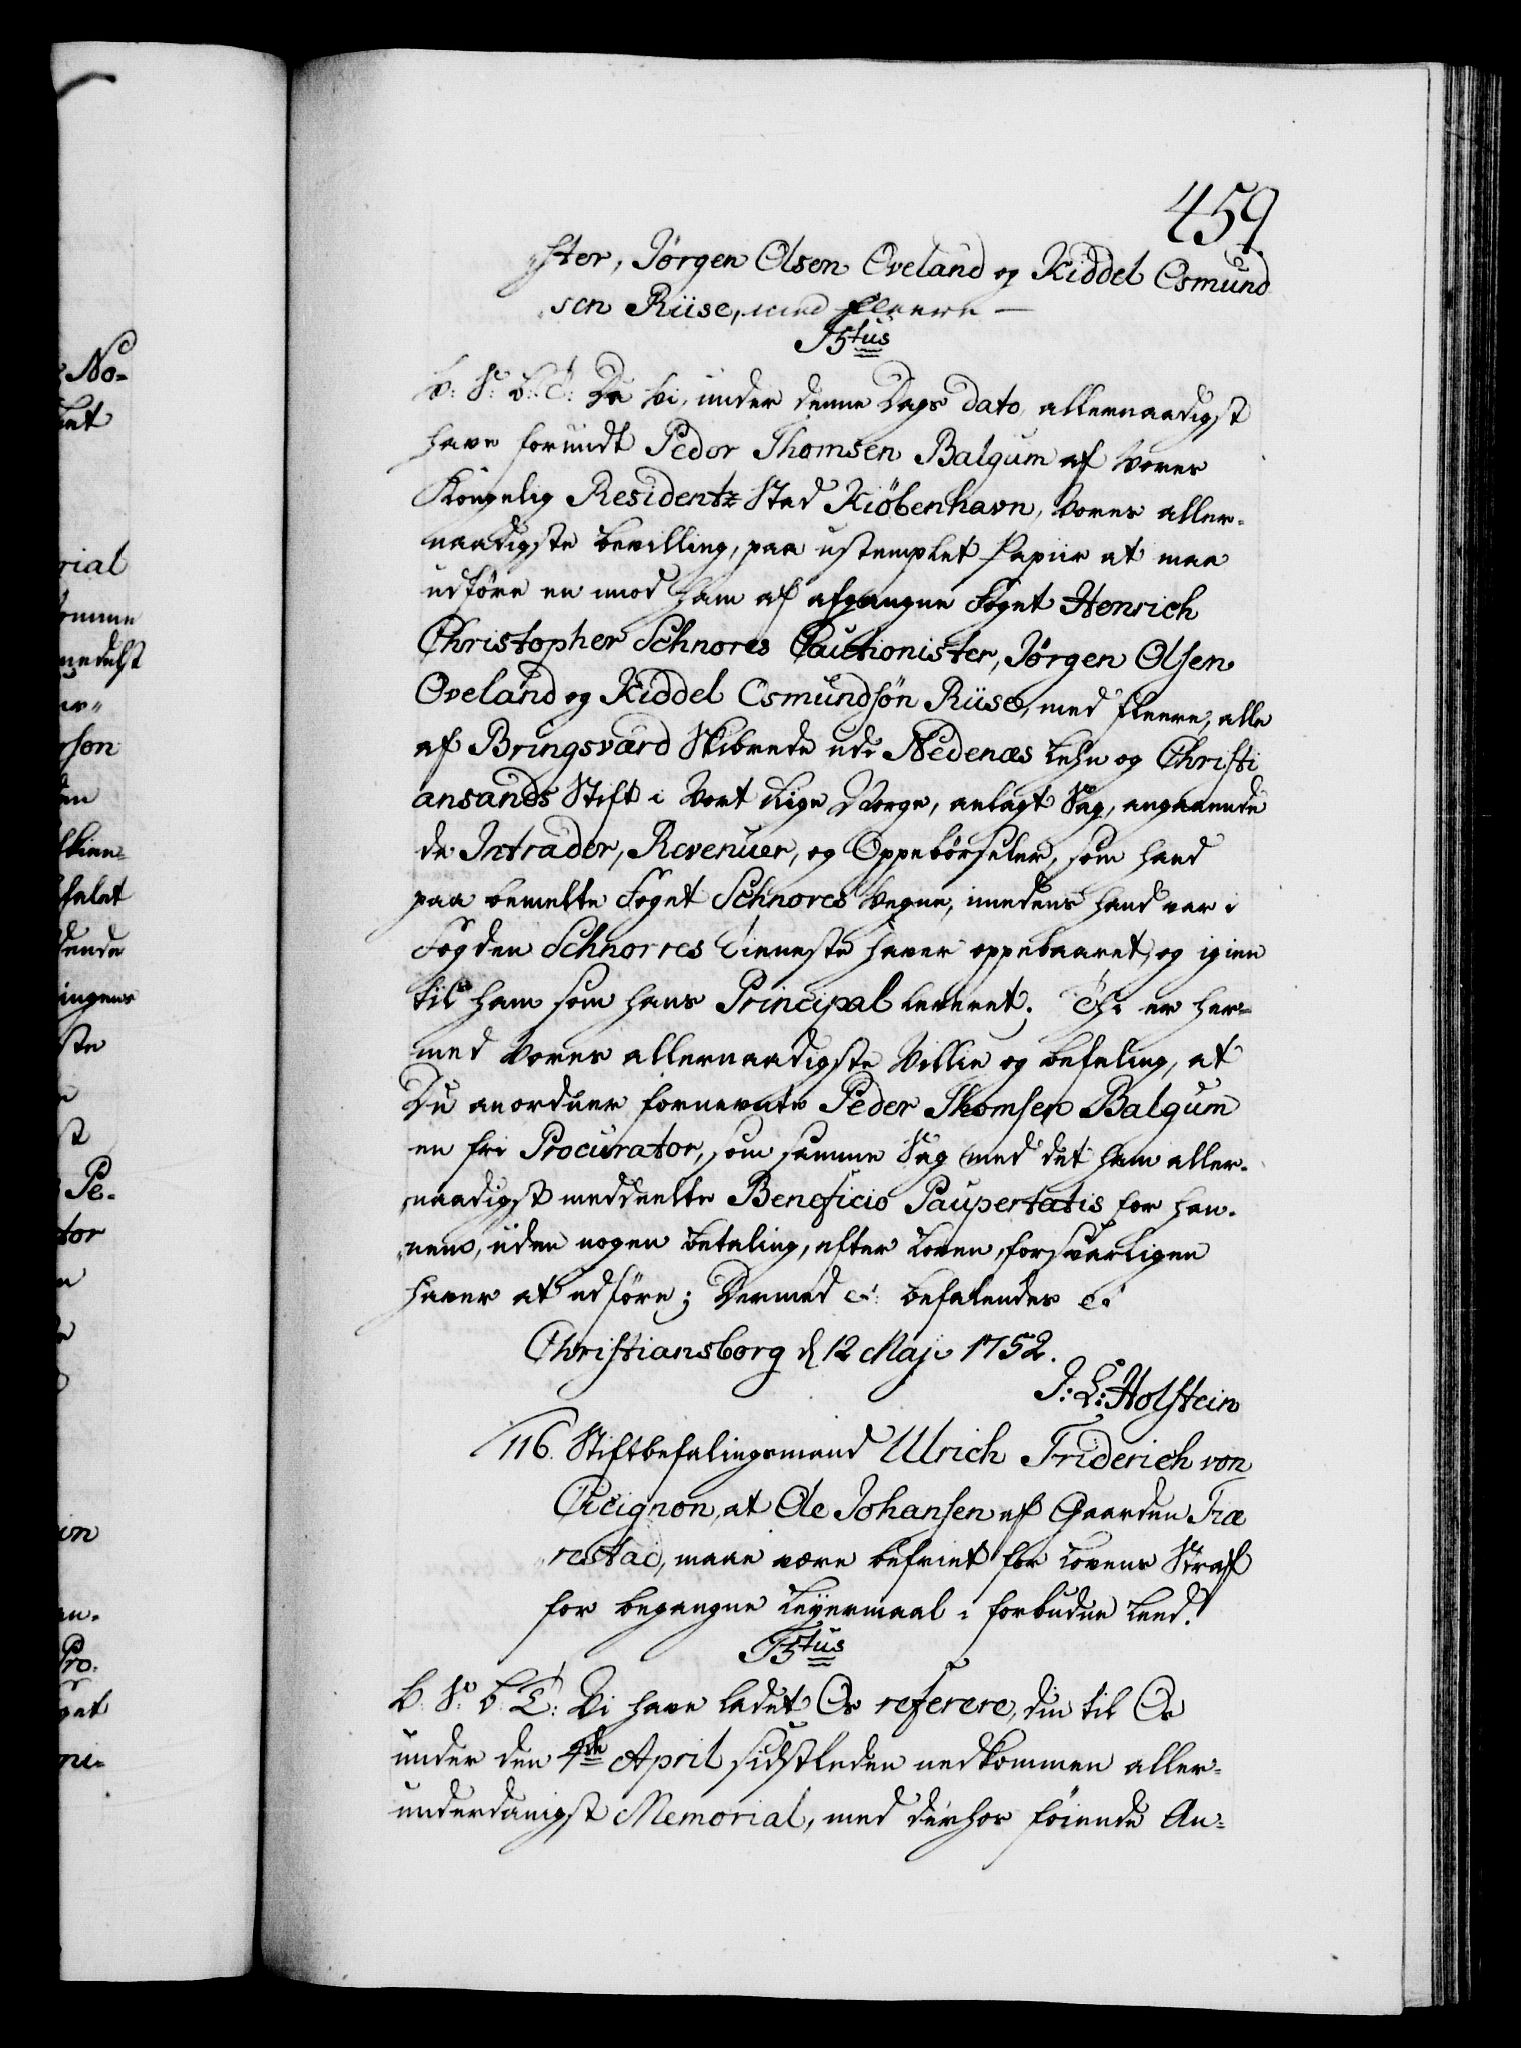 459
ster, Jørgen Olsen Oveland og Kiddel Osmund
sen Riise, med fleere —
Tstus
Da Vi, under denne Dags dato, allernaadigst
have forundt Peder Thomsen Balgum af Vores
Kongelig Residentz Stad Kiöbenhavn, Vores aller-
naadigste bevilling, paa ustemplet Papiir at maa
udføre en imod ham af afgangne Foget Henrich
Christopher Schnores Cautionister, Jørgen Olsen
Oveland og Kiddel Osmundsøn Riise, med fleere, alle
af Bringsværd Skibrede udi Nedenæs Lehn og Christi
ansands Stift i Vort Rige Norge, anlagt Sag, angaaende
de Intrader, Revenuer, og Oppebørseler, som hand
paa bemelte Foget Schnores Vegne, imedens hand var i
Fogden Schnorres Tieneste haver oppebaaret, og igien
til ham som hans Principal leveret; Thi er her-
med Vores allernaadigste Villie og befaling, at
Du anordner fornevnte Peder Thomsen Balgum
en fri Procurator, som samme Sag med det ham aller-
naadigst meddeelte Beneficio Paupertatis for han-
nem, uden nogen betaling, efter Loven, forsvarligen
haver at udføre; Dermed etc: befalendes etc
Christiansborg d 12 Maji 1752.
J: L: Holstein
116. Stiftbefalingsmand Ulrich Friderich von
Cicignon, at Ole Johansen af Gaarden Træ
restad, maae være befriet for Lovens Straf
for begangne Leyermaal i forbudne Leed.
Tstus
Vi have ladet Os referere, din til Os
under den 4de April sidstleden nedkommen aller-
underdanigst Memorial, med derhos føiende An-